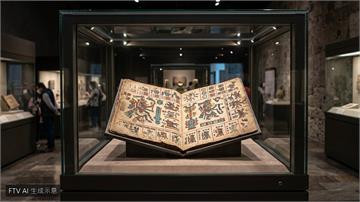 FTV AI 生成示意